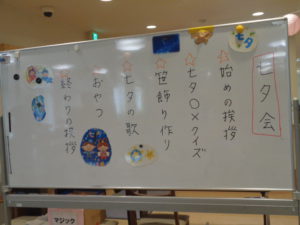 七夕会
☆始めの挨拶
☆七夕〇×クイズ
☆笹飾り作り
☆七夕の歌
☆おやつ
☆終わりの挨拶
マジック